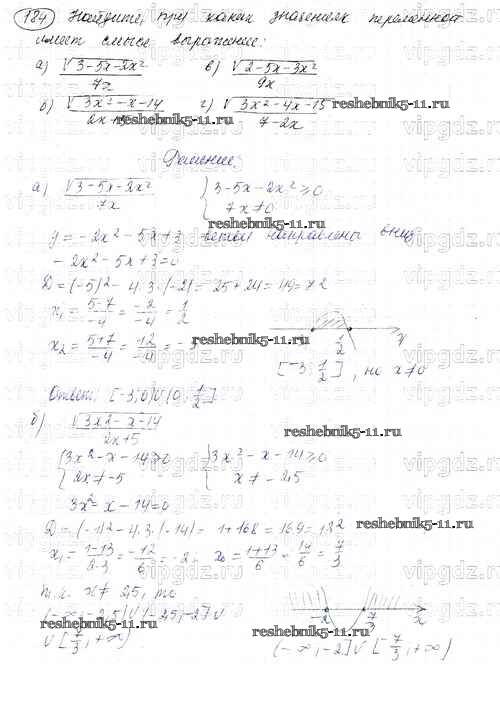 184 Найдите, при каких значениях переменной
имеет смысл выражение:
а) √3-5x-2x² / 7x в) √2-5x-3x² / 9x
б) √3x²-x-14 / 2x г) √3x²-4x-15 / 7-2x
reshebnik5-11.ru
reshebnik5-11.ru
Решение:
а) √3-5x-2x² / 7x { 3-5x-2x² ≥ 0
7x ≠ 0
reshebnik5-11.ru
y = -2x²-5x+3 ветви направлены вниз
-2x²-5x+3=0
D = (-5)² - 4·3·(-2) = 25+24 = 49 = 7²
x₁ = 5-7/-4 = -2/-4 = 1/2
x₂ = 5+7/-4 = 12/-4 = -
reshebnik5-11.ru
1/2 x
[-3; 1/2], но x≠0
Ответ: [-3;0)∪(0; 1/2]
reshebnik5-11.ru
б) √3x2-x-14 / 2x+5
{ 3x²-x-14 ≥ 0 { 3x²-x-14 ≥ 0
2x ≠ -5 x ≠ -2,5
3x²-x-14=0
D = (-1)²-4·3·(-14) = 1+168 = 169 = 13²
reshebnik5-11.ru
x₁ = 1-13/2·3 = -12/6 = -2; x₂ = 1+13/6 = 14/6 = 7/3
т.к. x ≠ 2,5, то
(-∞; -2,5)∪(-2,5; -2]∪
-2 7/3 x
∪[7/3; +∞)
reshebnik5-11.ru
reshebnik5-11.ru
(-∞; -2]∪[7/3; +∞)
vipgdz.ru